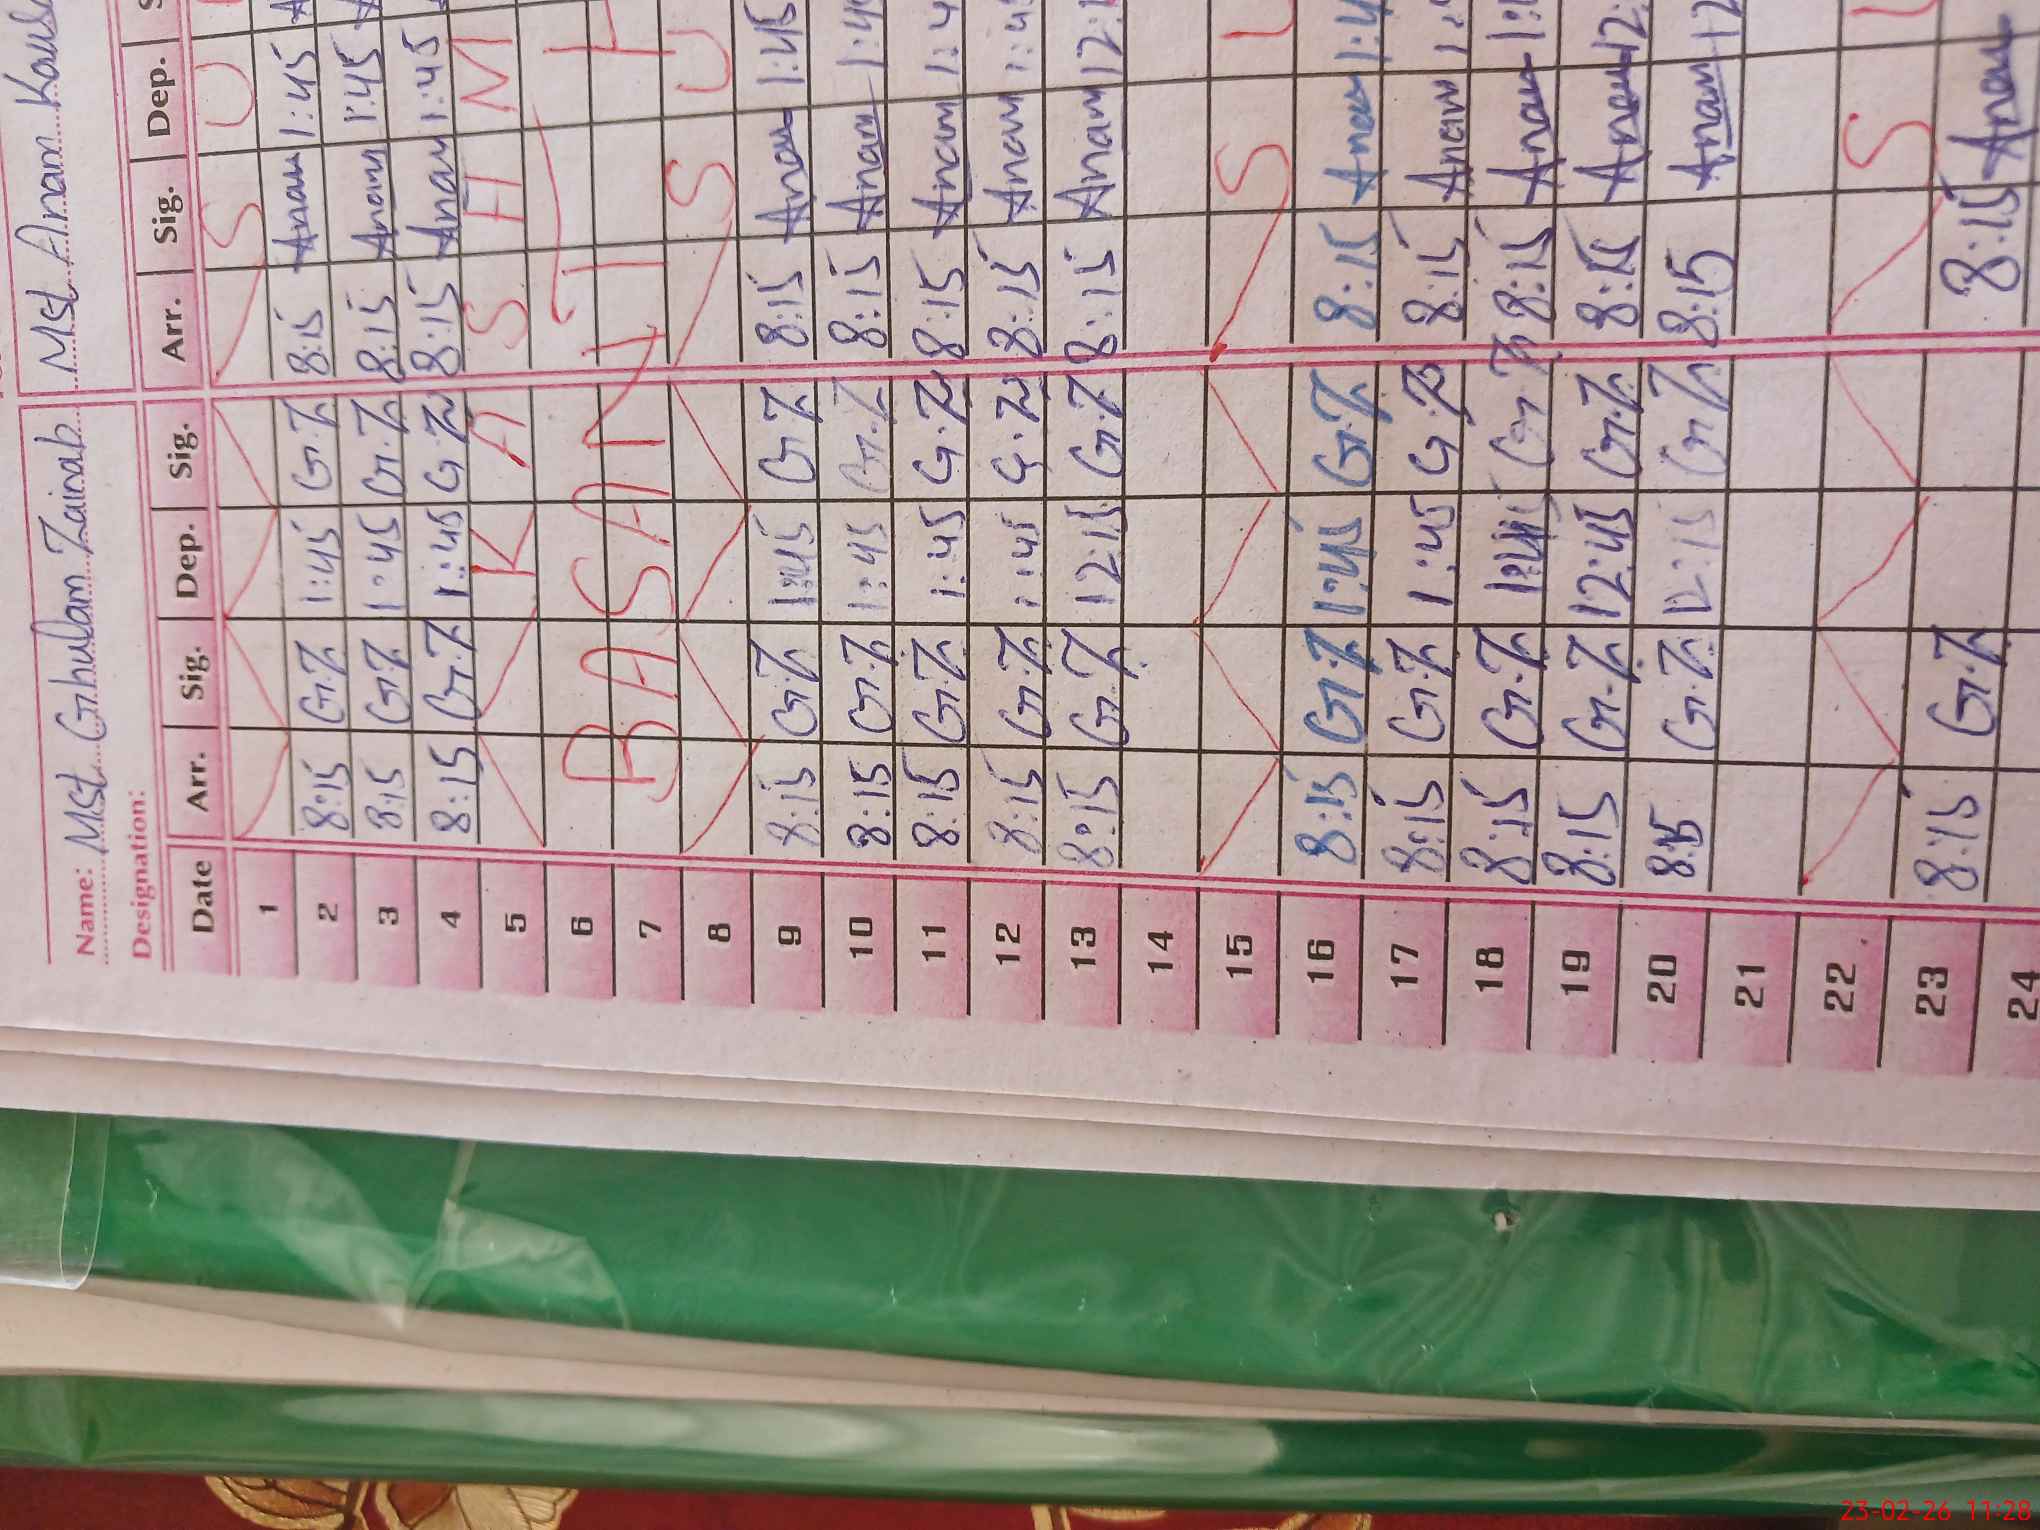 Name: Mst Ghulam Zainab Mst Anam
Designation:
Date Arr. Sig. Dep. Sig. Arr. Sig. Dep.
1 S U
2 8:15 G.Z 1:45 G.Z 8:15 Anam 1:45
3 8:15 G.Z 1:45 G.Z 8:15 Anam 1:45
4 8:15 G.Z 1:45 G.Z 8:15 Anam 1:45
5 K A S H M
6
7 BASANT
8 S U
9 8:15 G.Z 1:45 G.Z 8:15 Anam 1:45
10 8:15 G.Z 1:45 G.Z 8:15 Anam
11 8:15 G.Z 1:45 G.Z 8:15 Anam
12 8:15 G.Z 1:45 G.Z 8:15 Anam
13 8:15 G.Z 12:15 G.Z 8:15 Anam
14
15 S
16 8:15 G.Z 1:45 G.Z 8:15 Anam
17 8:15 G.Z 1:45 G.Z 8:15 Anam
18 8:15 G.Z 1:45 G.Z 8:15 Anam
19 8:15 G.Z 12:45 G.Z 8:15 Anam
20 8:15 G.Z 12:15 G.Z 8:15 Anam
21
22 S
23 8:15 G.Z 8:15 Anam
24
23-02-26 11:28